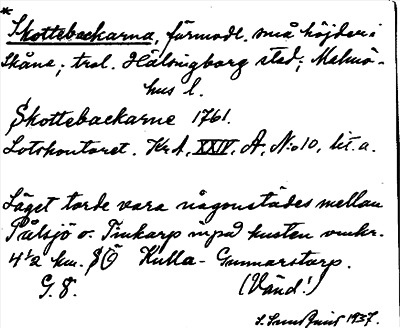 *
Skottebackarna, förmodl. små höjder i
Skåne; trol. Hälsingborg stad; Malmö-
hus l.
Skottebackarne 1761.
Lotskontoret. Kr.A, XXIV, A, N:o 10, lit. a.
Läget torde vara någonstädes mellan
Pålsjö o. Tinkarp inpå kusten omkr.
4½ km. SÖ Kulla-Gunnarstorp.
G. 8. (Vänd!)
1937.